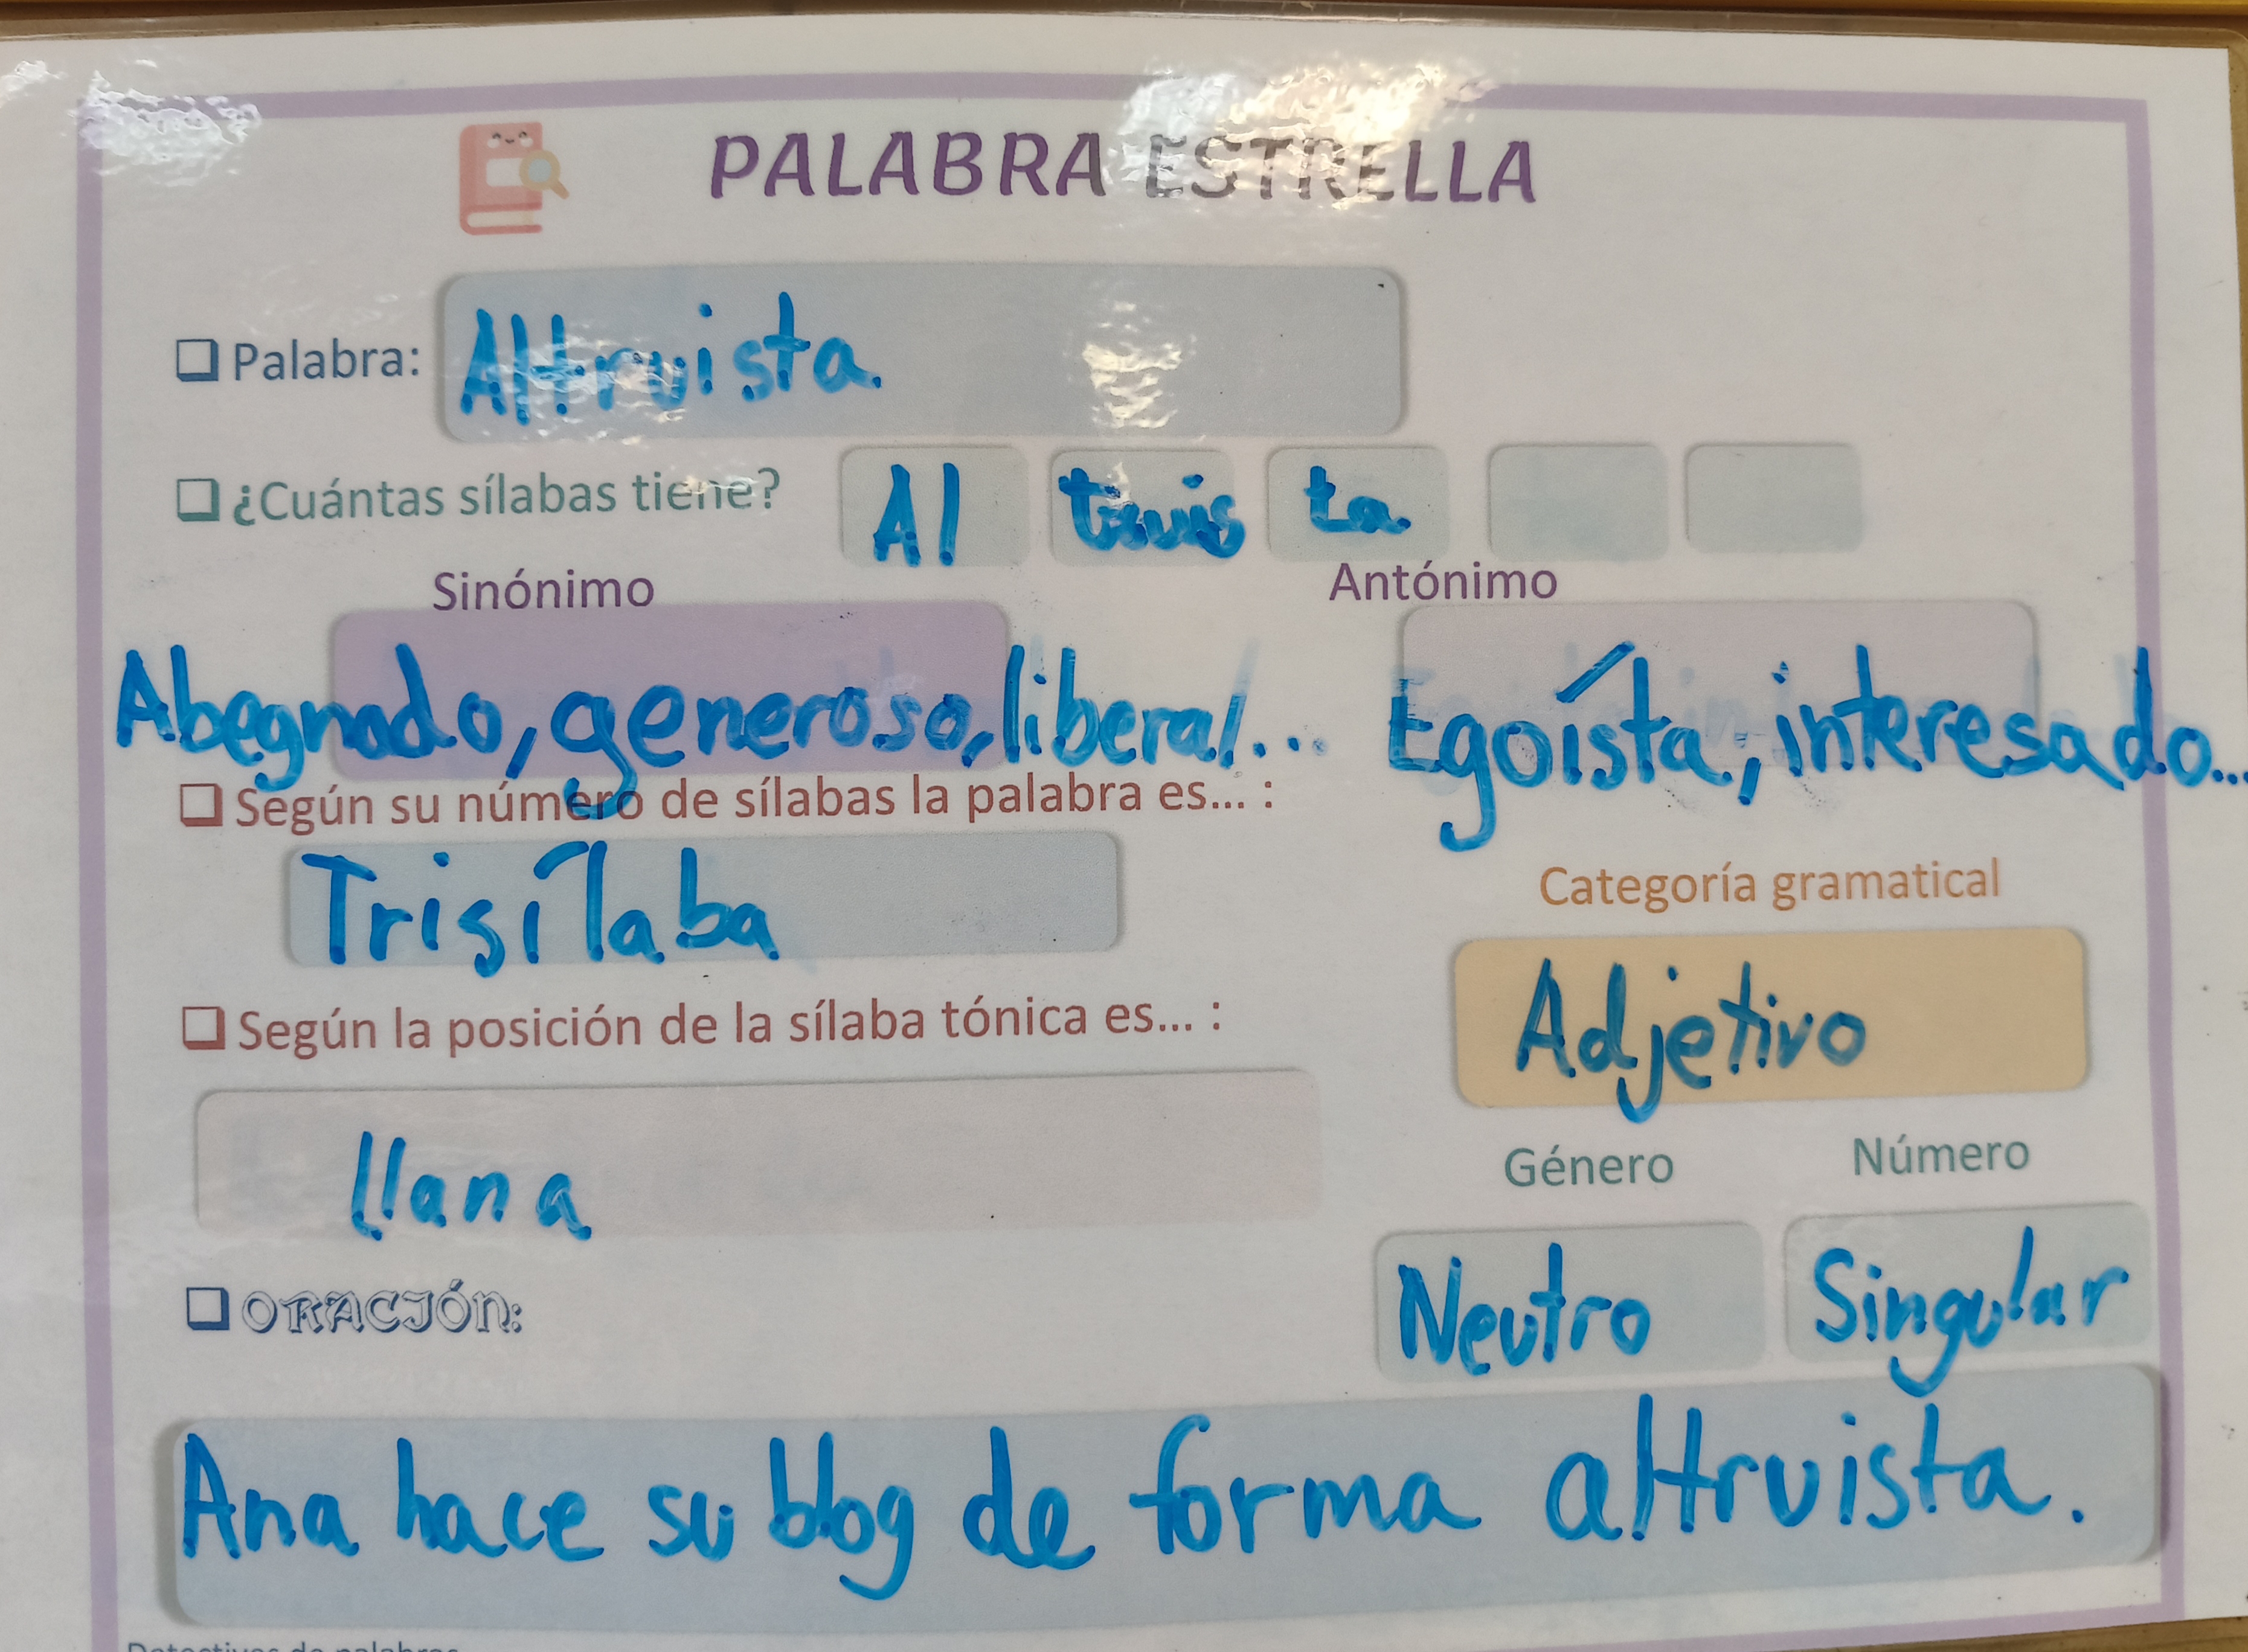 PALABRA ESTRELLA
Palabra: Altruista
¿Cuántas sílabas tiene? Al truis ta
Sinónimo Antónimo
Abegnado, generoso, liberal... Egoísta, interesado...
Según su número de sílabas la palabra es... :
Trisílaba
Categoría gramatical
Adjetivo
Según la posición de la sílaba tónica es... :
llana
Género Número
Neutro Singular
ORACIÓN:
Ana hace su blog de forma altruista.
Detectives de palabras